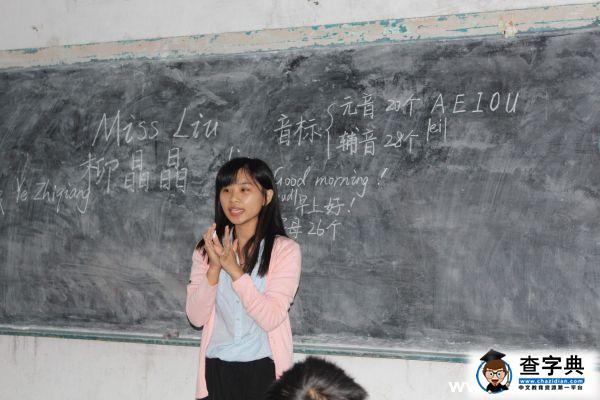 Miss Liu
柳晶晶
Ye Zhiqiang
音标
元音 20个 A E I O U
辅音 28个 [ei]
Good morning!
早上好!
母 26个
查字典
www.chazidian.com
中文教育资源第一平台